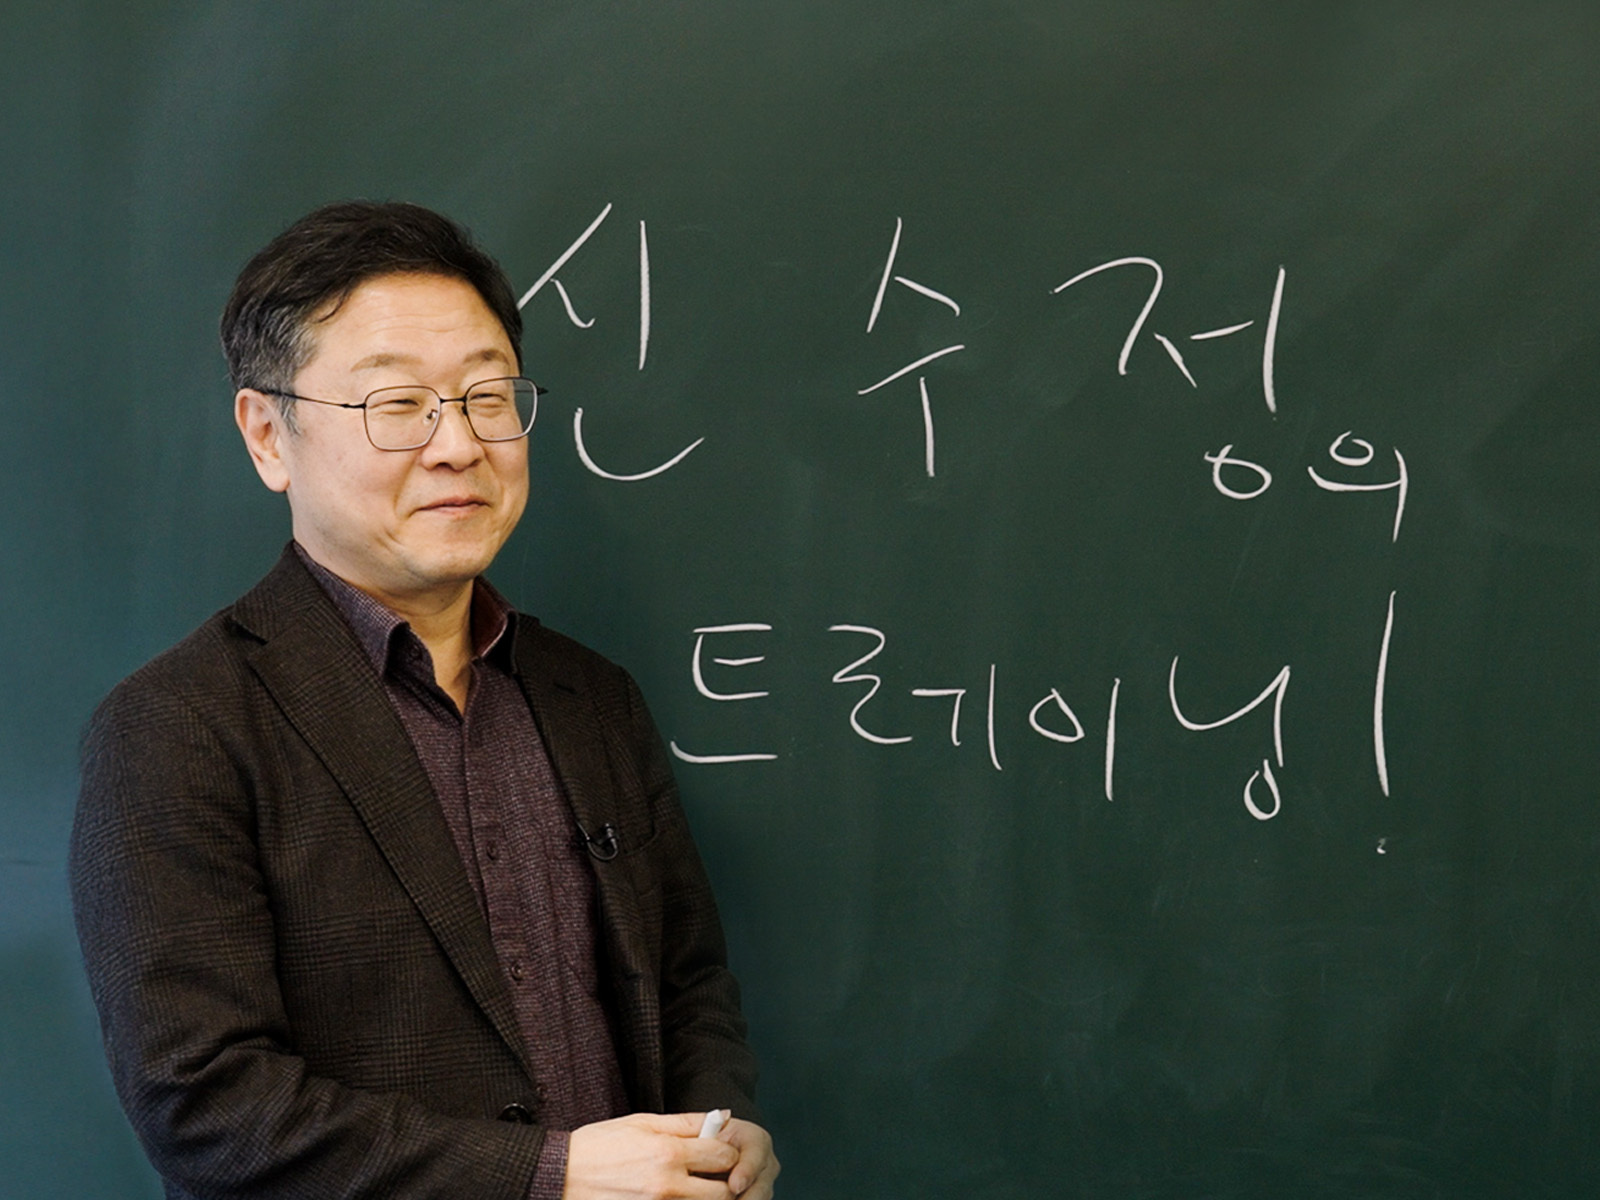 신수정의
트레이닝!